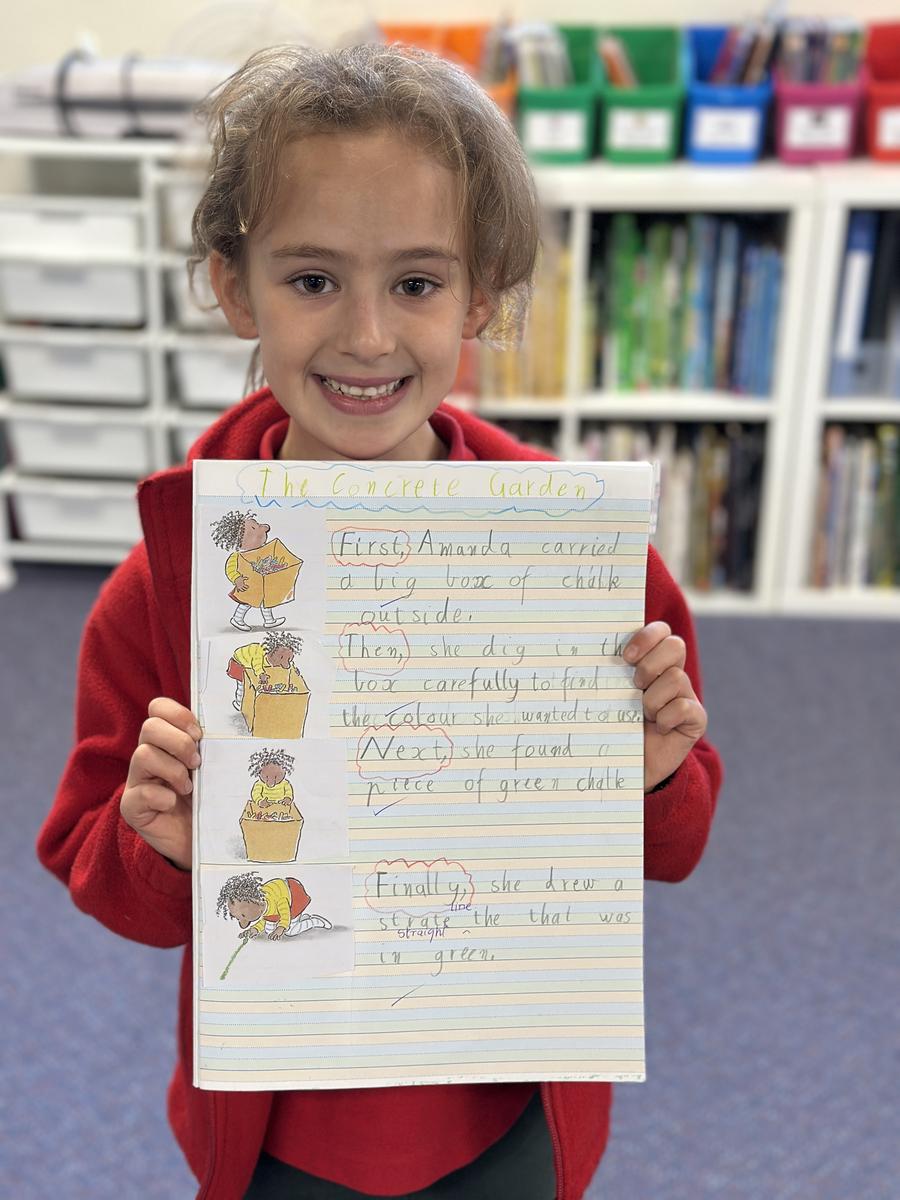 The Concrete Garden
First, Amanda carried
a big box of chalk
outside.
Then, she dig in th
box carefully to find
the colour she wanted to use.
Next, she found a
piece of green chalk
Finally, she drew a
line
strate the that was
straight
in green.